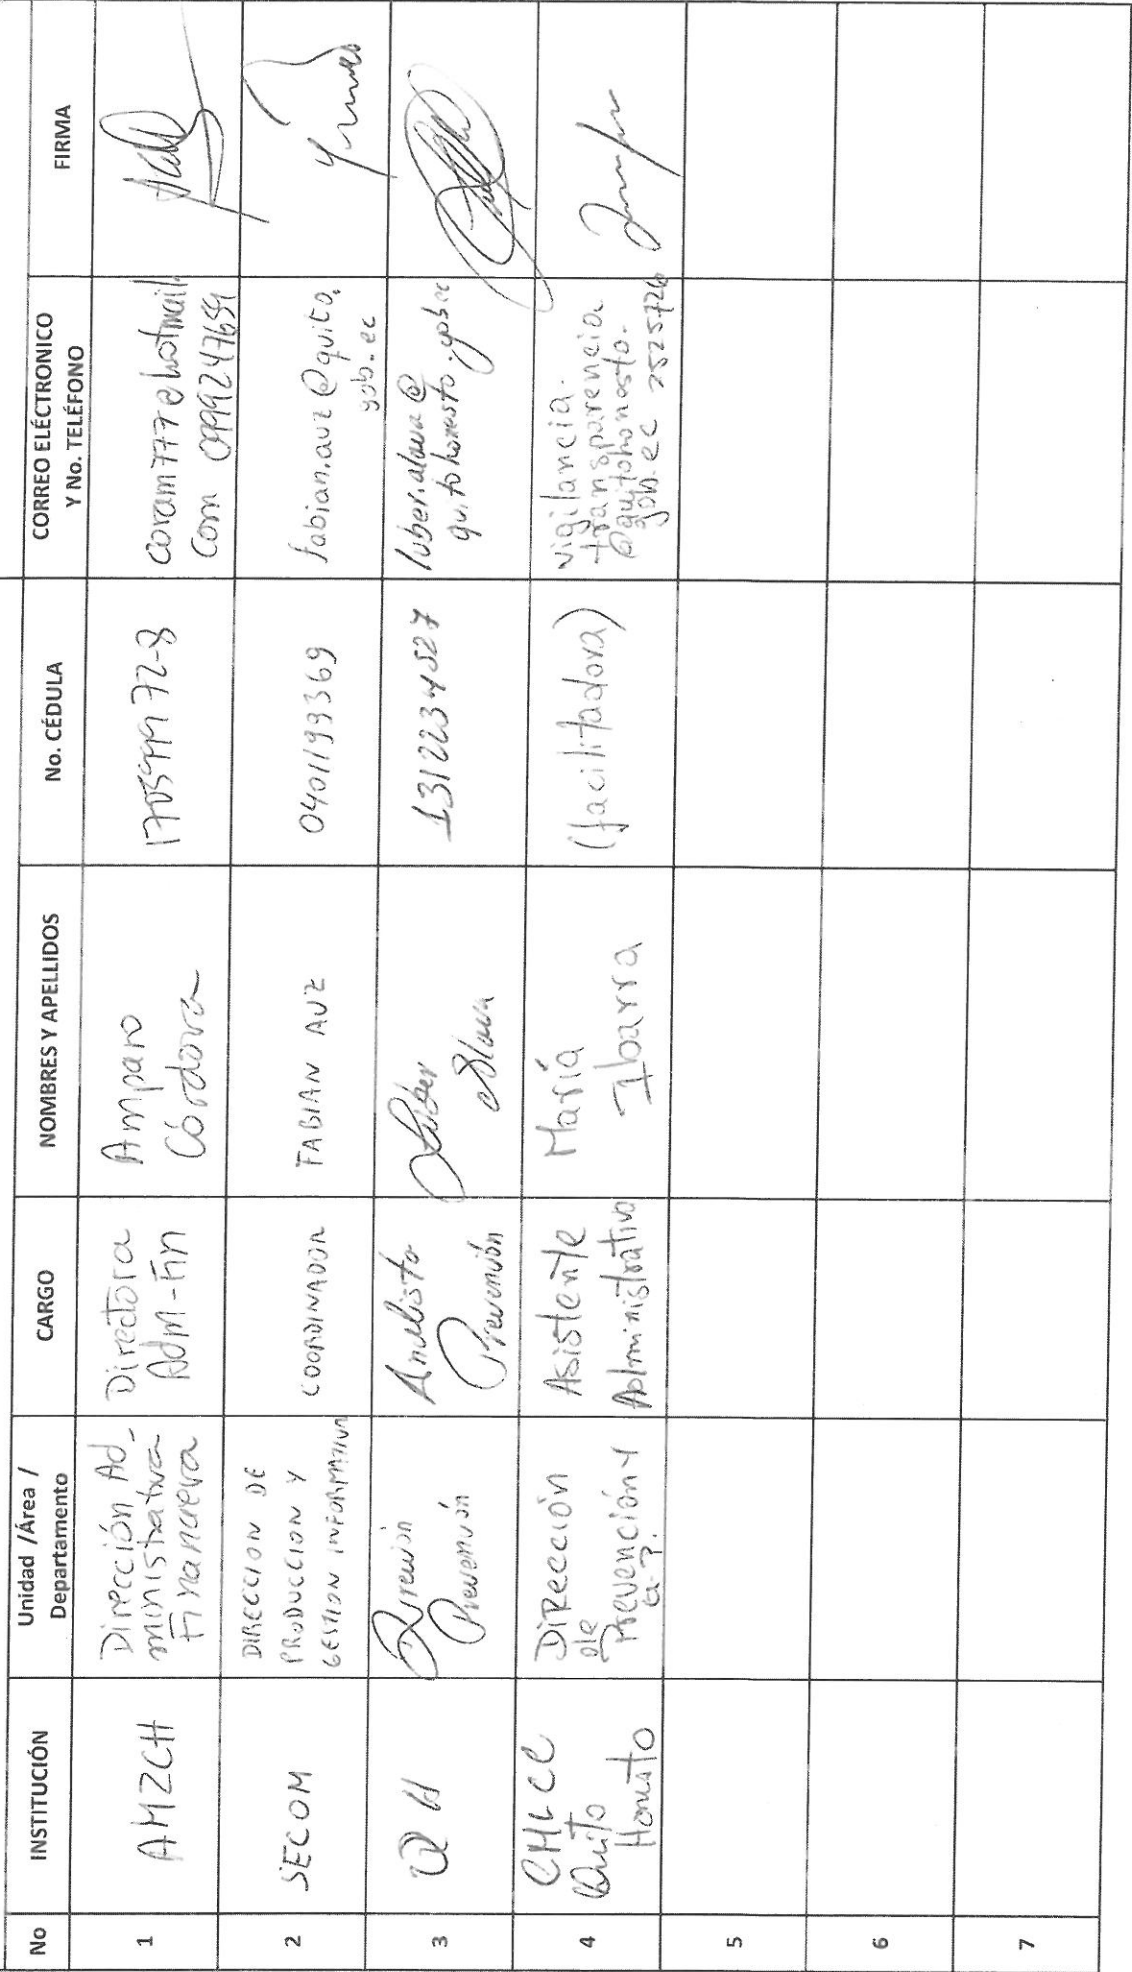 No
INSTITUCIÓN
Unidad /Área /
Departamento
CARGO
NOMBRES Y APELLIDOS
No. CÉDULA
CORREO ELÉCTRONICO
Y No. TELÉFONO
FIRMA
1
AMZCH
Dirección Ad-
ministrativa
Financiera
Directora
Adm-Fin
Amparo
Córdova
coram777@hotmail.
com 0999247659
2
SECOM
DIRECCION DE
PRODUCCION Y
GESTION INFORMATIVA
COORDINADOR
FABIAN AUZ
0401199369
fabian.auz@quito.
gob.ec
3
QH
Dirección
Prevención
Analista
Prevención
Luber
Alava
1312234527
luber.alava@
quitohonesto.gob.ec
4
CMLCC
Quito
Honesto
Dirección
de
Prevención y
Asistente
Administrativa
María
Ibarra
(facilitadora)
vigilancia.
transparencia
@quitohonesto.
gob.ec 2525726
5
6
7